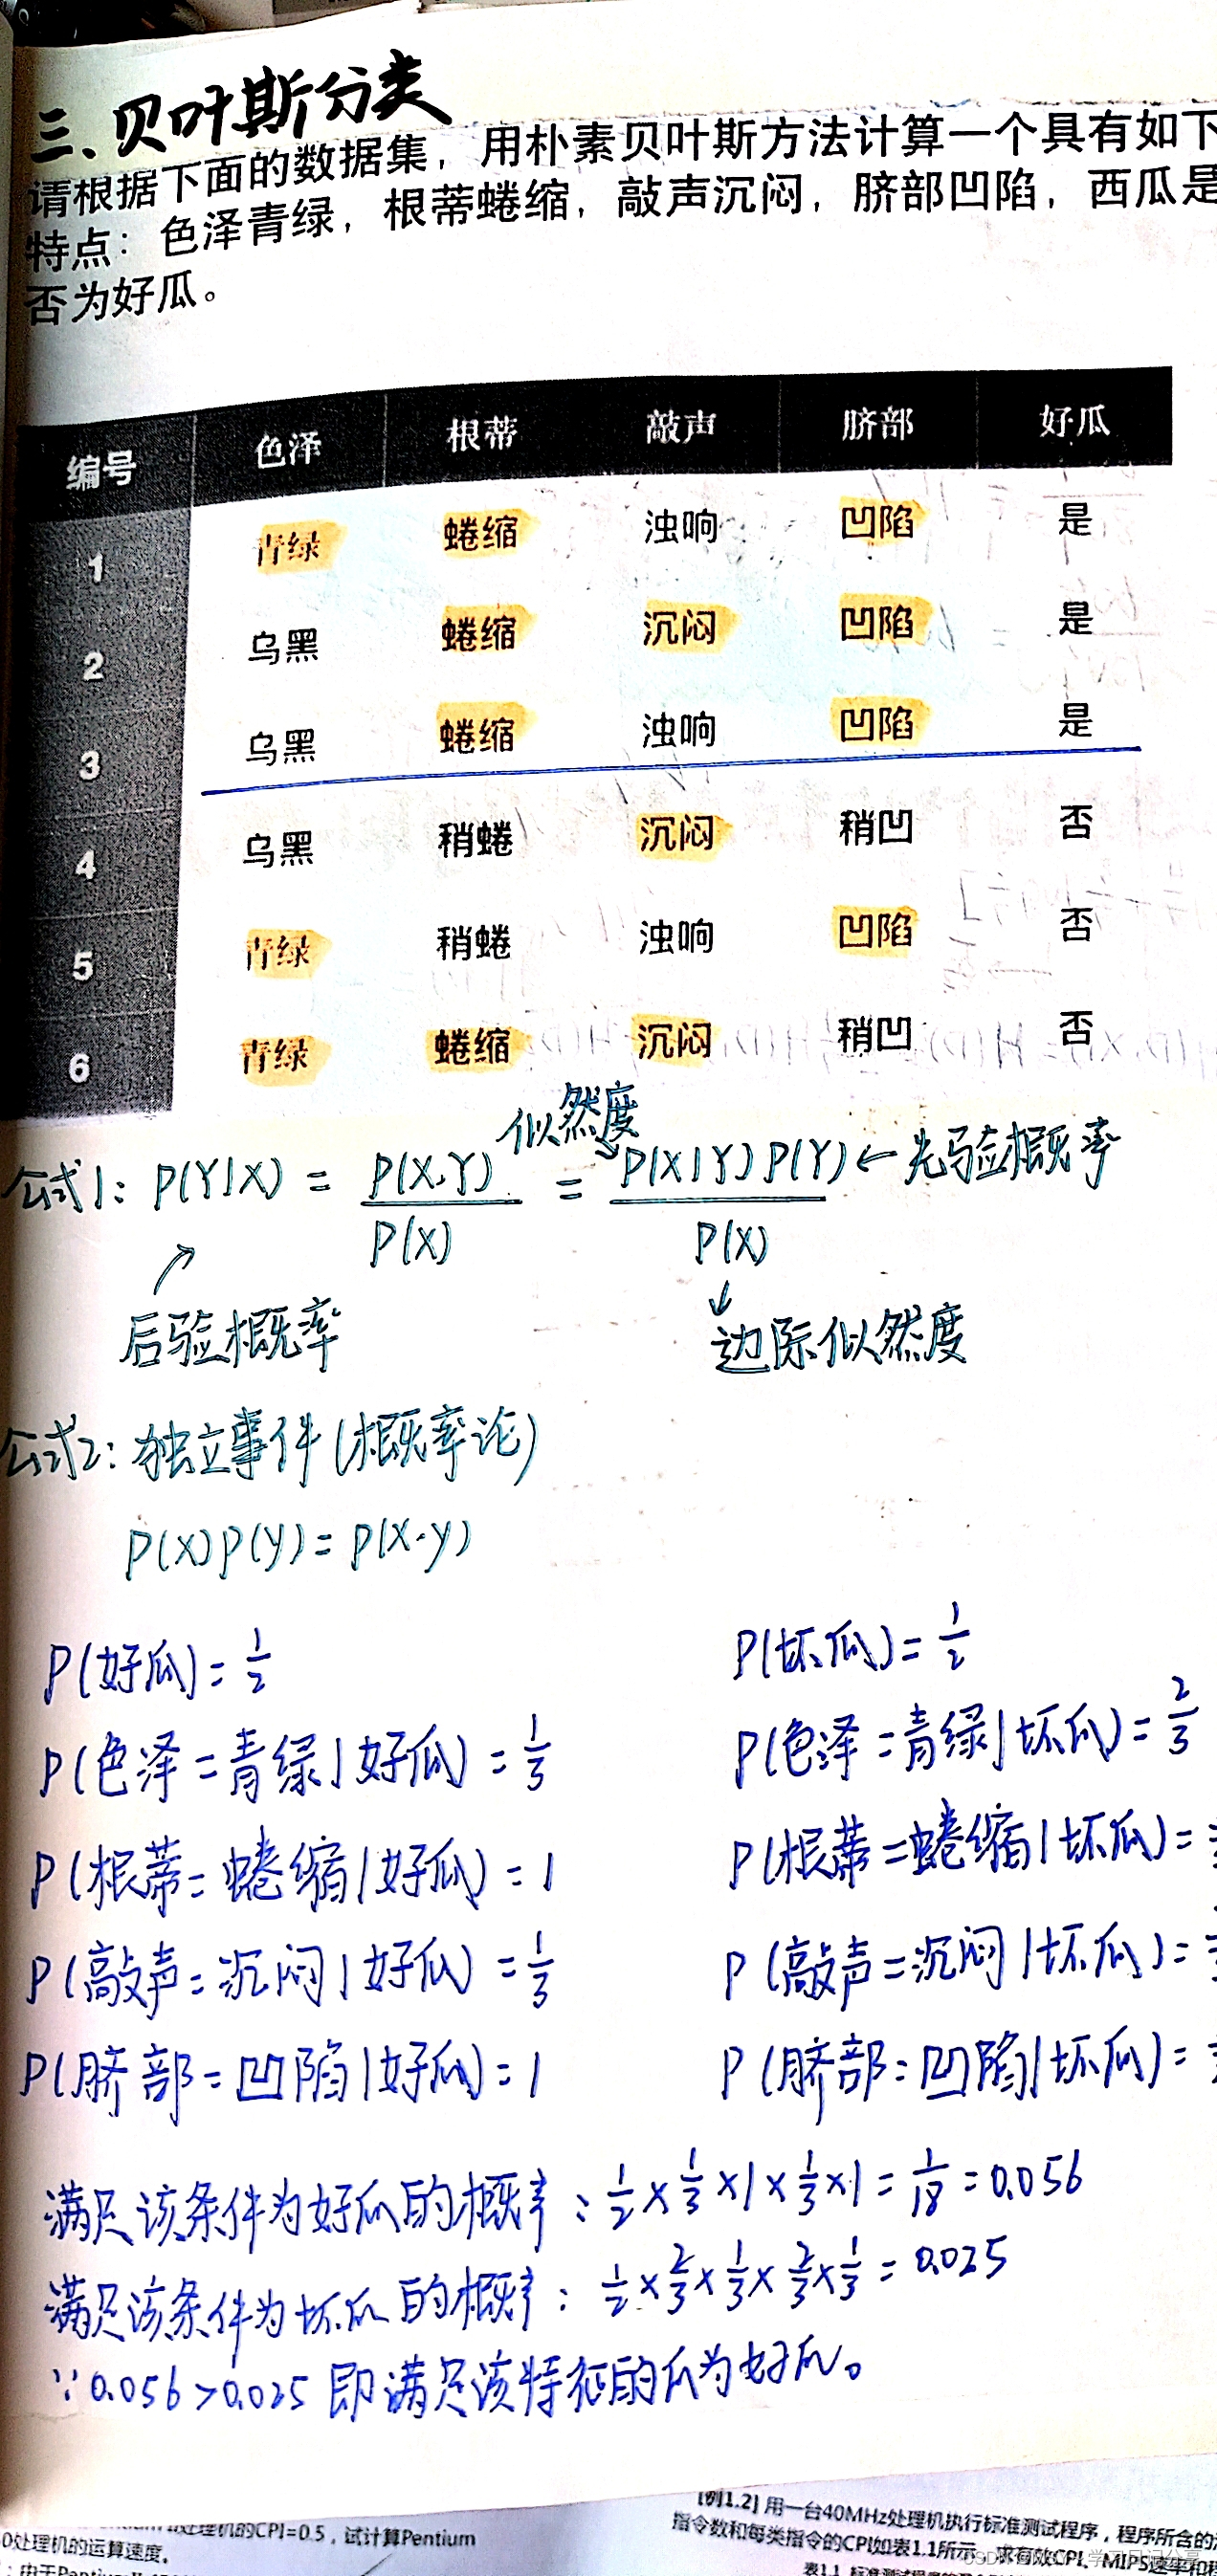 三、贝叶斯分类
请根据下面的数据集，用朴素贝叶斯方法计算一个具有如下
特点：色泽青绿，根蒂蜷缩，敲声沉闷，脐部凹陷，西瓜是
否为好瓜。
编号 色泽 根蒂 敲声 脐部 好瓜
1 青绿 蜷缩 浊响 凹陷 是
2 乌黑 蜷缩 沉闷 凹陷 是
3 乌黑 蜷缩 浊响 凹陷 是
4 乌黑 稍蜷 沉闷 稍凹 否
5 青绿 稍蜷 浊响 凹陷 否
6 青绿 蜷缩 沉闷 稍凹 否
似然度
公式1: P(Y|X) = P(X,Y)/P(X) = P(X|Y)P(Y)/P(X) ← 先验概率
后验概率 边际似然度
公式2: 独立事件(概率论)
P(X)P(Y)=P(X·Y)
P(好瓜)=1/2 P(坏瓜)=1/2
P(色泽=青绿|好瓜)=1/3 P(色泽=青绿|坏瓜)=2/3
P(根蒂=蜷缩|好瓜)=1 P(根蒂=蜷缩|坏瓜)=
P(敲声=沉闷|好瓜)=1/3 P(敲声=沉闷|坏瓜)=
P(脐部=凹陷|好瓜)=1 P(脐部=凹陷|坏瓜)=
满足该条件为好瓜的概率：1/2×1/3×1×1/3×1=1/18=0.056
满足该条件为坏瓜的概率：1/2×2/3×1/3×2/3×1/3=0.025
∵0.056>0.025 即满足该特征的瓜为好瓜。
[例1.2] 用一台40MHz处理机执行标准测试程序，程序所含的
处理机的CPI=0.5，试计算Pentium
指令数和每类指令的CPI如表1.1所示，求有效CPI、MIPS速率和
0处理机的运算速度。
表1.1